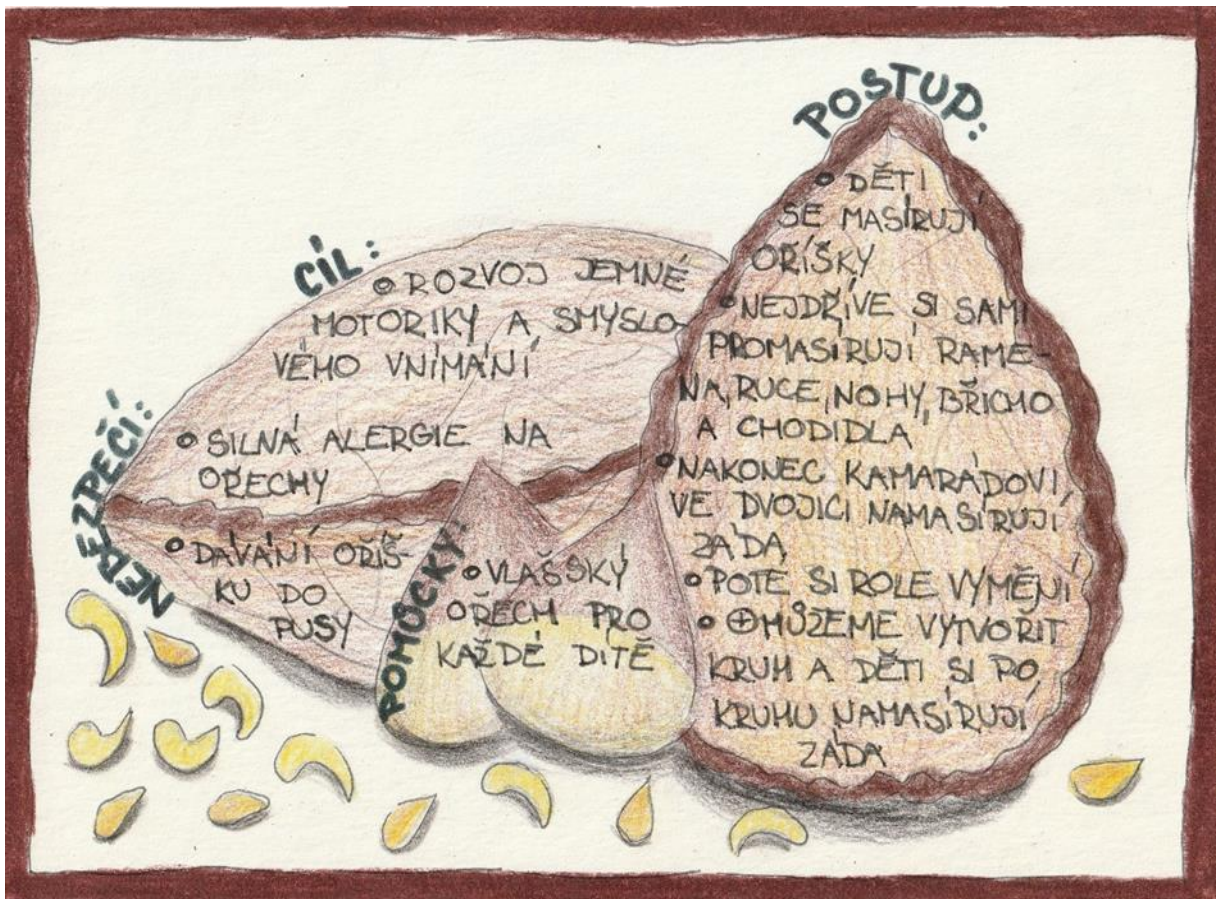 CÍL:
• ROZVOJ JEMNÉ
MOTORIKY A SMYSLO-
VÉHO VNÍMÁNÍ
NEBEZPEČÍ:
• SILNÁ ALERGIE NA
OŘECHY
• DÁVÁNÍ OŘÍŠ-
KU DO
PUSY
POMŮCKY:
• VLAŠSKÝ
OŘECH PRO
KAŽDÉ DÍTĚ
POSTUP:
• DĚTI
SE MASÍRUJÍ
OŘÍŠKY
• NEJDŘÍVE SI SAMI
PROMASÍRUJÍ RAME-
NA, RUCE, NOHY, BŘICHO
A CHODIDLA
• NAKONEC KAMARÁDOVI,
VE DVOJICI NAMASÍRUJÍ
ZÁDA
• POTÉ SI ROLE VYMĚNÍ
• ⊕ MŮŽEME VYTVOŘIT
KRUH A DĚTI SI PO
KRUHU NAMASÍRUJÍ
ZÁDA